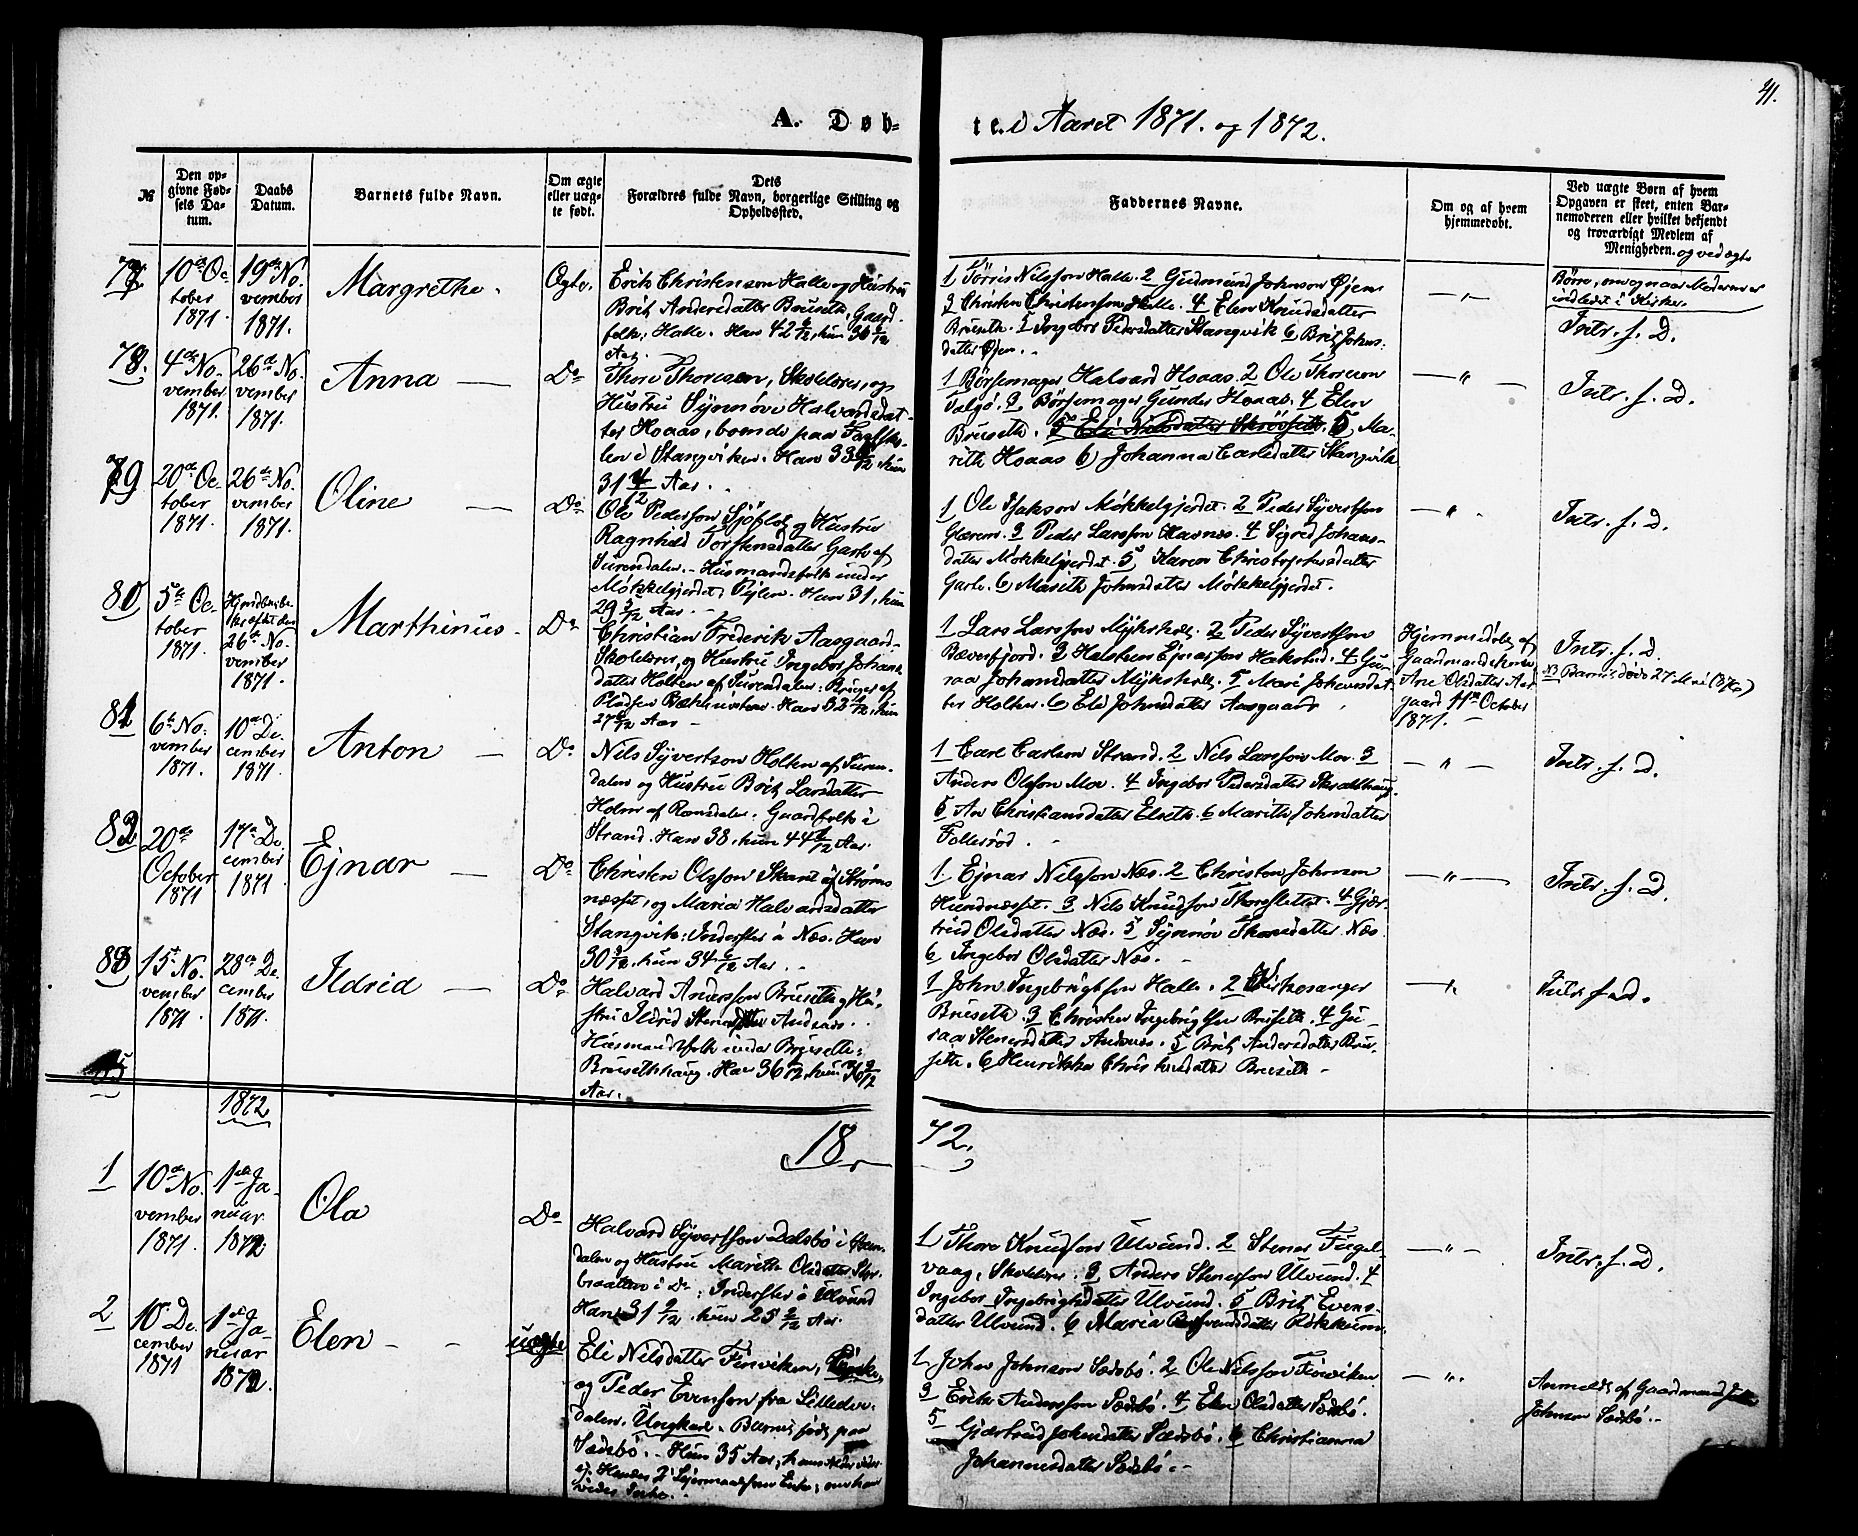 41.
A. Døb-
te i Aaret 1871. og 1872.
№
Den op-
givne Fød-
sels Da-
tum.
Daabs
Datum.
Barnets fulde Navn.
Om ægte
eller uæg-
te født.
Dets
Forældres fulde Navn, borgerlige Stilling og
Opholdssted.
Faddernes Navne.
Om og af hvem
hjemmedøbt.
Ved uægte Børn af hvem
Opgaven er skeet, enten Bar-
nemoderen eller hvilket bekjendt
og troværdigt Medlem af
Menigheden. og ved ægte
Børn, om og naar Moderen er
indledet i Kirken.
77
10de Oc-
tober
1871.
19de No-
vember
1871.
Margrethe.
Ægte.
Erik Christensen Halle og Hustru
Brit Andersdatter Bruseth, Gaard-
folk, Halle. Han 42 /12, hun 36 /12
Aar.
1 Tørris Nilsson Halle. 2 Gudmund Johnson Øjen
3 Christen Christensson Halle. 4 Elen Knudsdatter
Bruseth. 5 Ingebor Pedersdatter Stangvik 6 Brit Johns-
datter Øjen.
— " —
Intr. s. D.
78.
4de No-
vember
1871.
26de No-
vember
1871.
Anna —
Do
Thore Thoresen, Skolelærer, og
Hustru Synnøve Halvardsdat-
ter Hoaas, boende paa Fastsko-
len i Stangviken. Han 33 /12, hun
31 /12 Aar.
1 Børsemager Halvard Hoaas. 2 Ole Thoreson
Talgø. 3 Børsemager Gunder Hoaas. 4 Elen
Bruseth. 5 Eli Nilsdatter Skrøvseth. 5 Ma-
rith Hoaas 6) Johanna Carlsdatter Stangvik
— " —
Intr. s. D.
79
20de Oc-
tober
1871.
26de No-
vember
1871.
Oline —
Do
Ole Pederson Sjøflot og Hustru
Ragnhild Torstensdatter Garte af
Surendalen. Husmandsfolk under
Møkkelgjerdet, Han 31, hun
29 /12 Aar.
1 Ole Møkkelgjerdet. 2 Peder Syvertson
Glærem. 3 Peder Larsson Havnes. 4 Sigrid Johans-
datter Møkkelgjerdet. 5 Karen Christophersdatter
Garte. 6 Marith Johnsdatter Møkkelgjerdet.
— " —
Intr. s. D.
80
5te Oc-
tober
1871.
26de No-
vember
1871.
Marthinus.
Do
Christian Frederik Aasgaard,
Skolelærer, og Hustru Ingebor Johans-
datter Holten af Surendalen: Bruger af
Pladsen Han 32 /12, hun
27 /12 Aar
1 Lars Larsson Mykleholt. 2 Peder Syvertson
Bæverfjord. 3 Halsten Ejnarsson Hakstad. 4 Gu-
raa Johansdatter Mykleholt. 5 Mari Johansdat-
ter Holten. 6 Eli Johnsdatter Aasgaard
Hjemmedøbt af
Gaardmandskone
Ane Olsdatter Aas-
gaard 11te October
1871.
Intr. s. D.
81
6te No-
vember
1871.
10de De-
cember
1871.
Anton —
Do
Nils Syvertson Holten af Suren-
dalen og Hustru Brit Larsdatter
Holm af Romsdalen. Gaardfolk i
Strand. Han 38, hun 44 /12 Aar.
1 Carl Carlsen Strand. 2 Nils Larsson Mo. 3
Anders Olsson Mo. 4 Ingebor Pedersdatter
5 An Christiansdatter Elseth. 6 Marith Johnsdatter
Follerød.
— " —
Intr. s. D.
82
20de
October
1871
17de De-
cember
1871.
Ejnar —
Do
Christen Olsson Skaret af Strøms-
næsset, og Maria Halvardsdatter
Stangvik: Inderster i Næs. Han
30 /12, hun 34 /12 Aar.
1. Ejnar Nilsson Næs. 2 Christen Johnson
Hundnæsset. 3 Nils Knudson Thoresletten. 4 Gjær-
trud Olsdatter Næs. 5 Synnøv Thorsdatter Næs.
6 Ingebor Olsdatter Næs.
— " —
Intr. s. D.
83
15de No-
vember
1871
28de De-
cember
1871.
Ildrid —
Do
Halvard Andersson Bruseth og Hu-
stru Ildrid Stenersdatter Andsaas.
Husmandsfolk under Bruseth:
Brusethhaug. Han 36 /12, hun 36 /12
Aar.
1 John Ingebrigtsen Halle. 2 Kirkesanger
Bruseth. 3 Christen Ingebrigtsen Bruseth. 4 Gu-
raa Stenersdatter Andsaas. 5 Brit Andersdatter Bru-
seth. 6 Henrikka Christensdatter Bruseth
— " —
Intr. s. D.
1872
1872.
1
10de No-
vember
1871.
1ste Ja-
nuar
1872
Ola
Do
Halvard Syvertson Dalsbø i Suren-
dalen og Hustru Marith Olsdatter
i Do: Inderster i Ulvund
Han 31 /12, hun 25 /12 Aar.
1 Thore Knudson Ulvund. 2 Stener Fugel-
vaag, Skolelærer. 3 Anders Stenerson Ulvund. 4
Ingebor Ingebrigtsdatter Ulvund. 5 Brit Evens-
datter Ulvund. 6 Maria Røkkum.
— " —
Intr. s. D.
2
10 De-
cember
1871
1ste Ja-
nuar
1872.
Elen —
uægte
Eli Nilsdatter Finviken, Enke,
og Peder Evenson fra Lilleda-
len. Ungkarl. Barnet født paa
Sædsbø. Hun 35 Aar,
1 John Johnson Sædsbø. 2 Ole Nilsson Finviken
3 Erik Andersson Sædsbø. 4 Elen Olsdatter Sædsbø.
5 Gjærtrud Johnsdatter Sædsbø. 6 Christianna
Johannesdatter Sædsbø.
— " —
Anmeldt af Gaardmand John
Johnson Sædsbø.